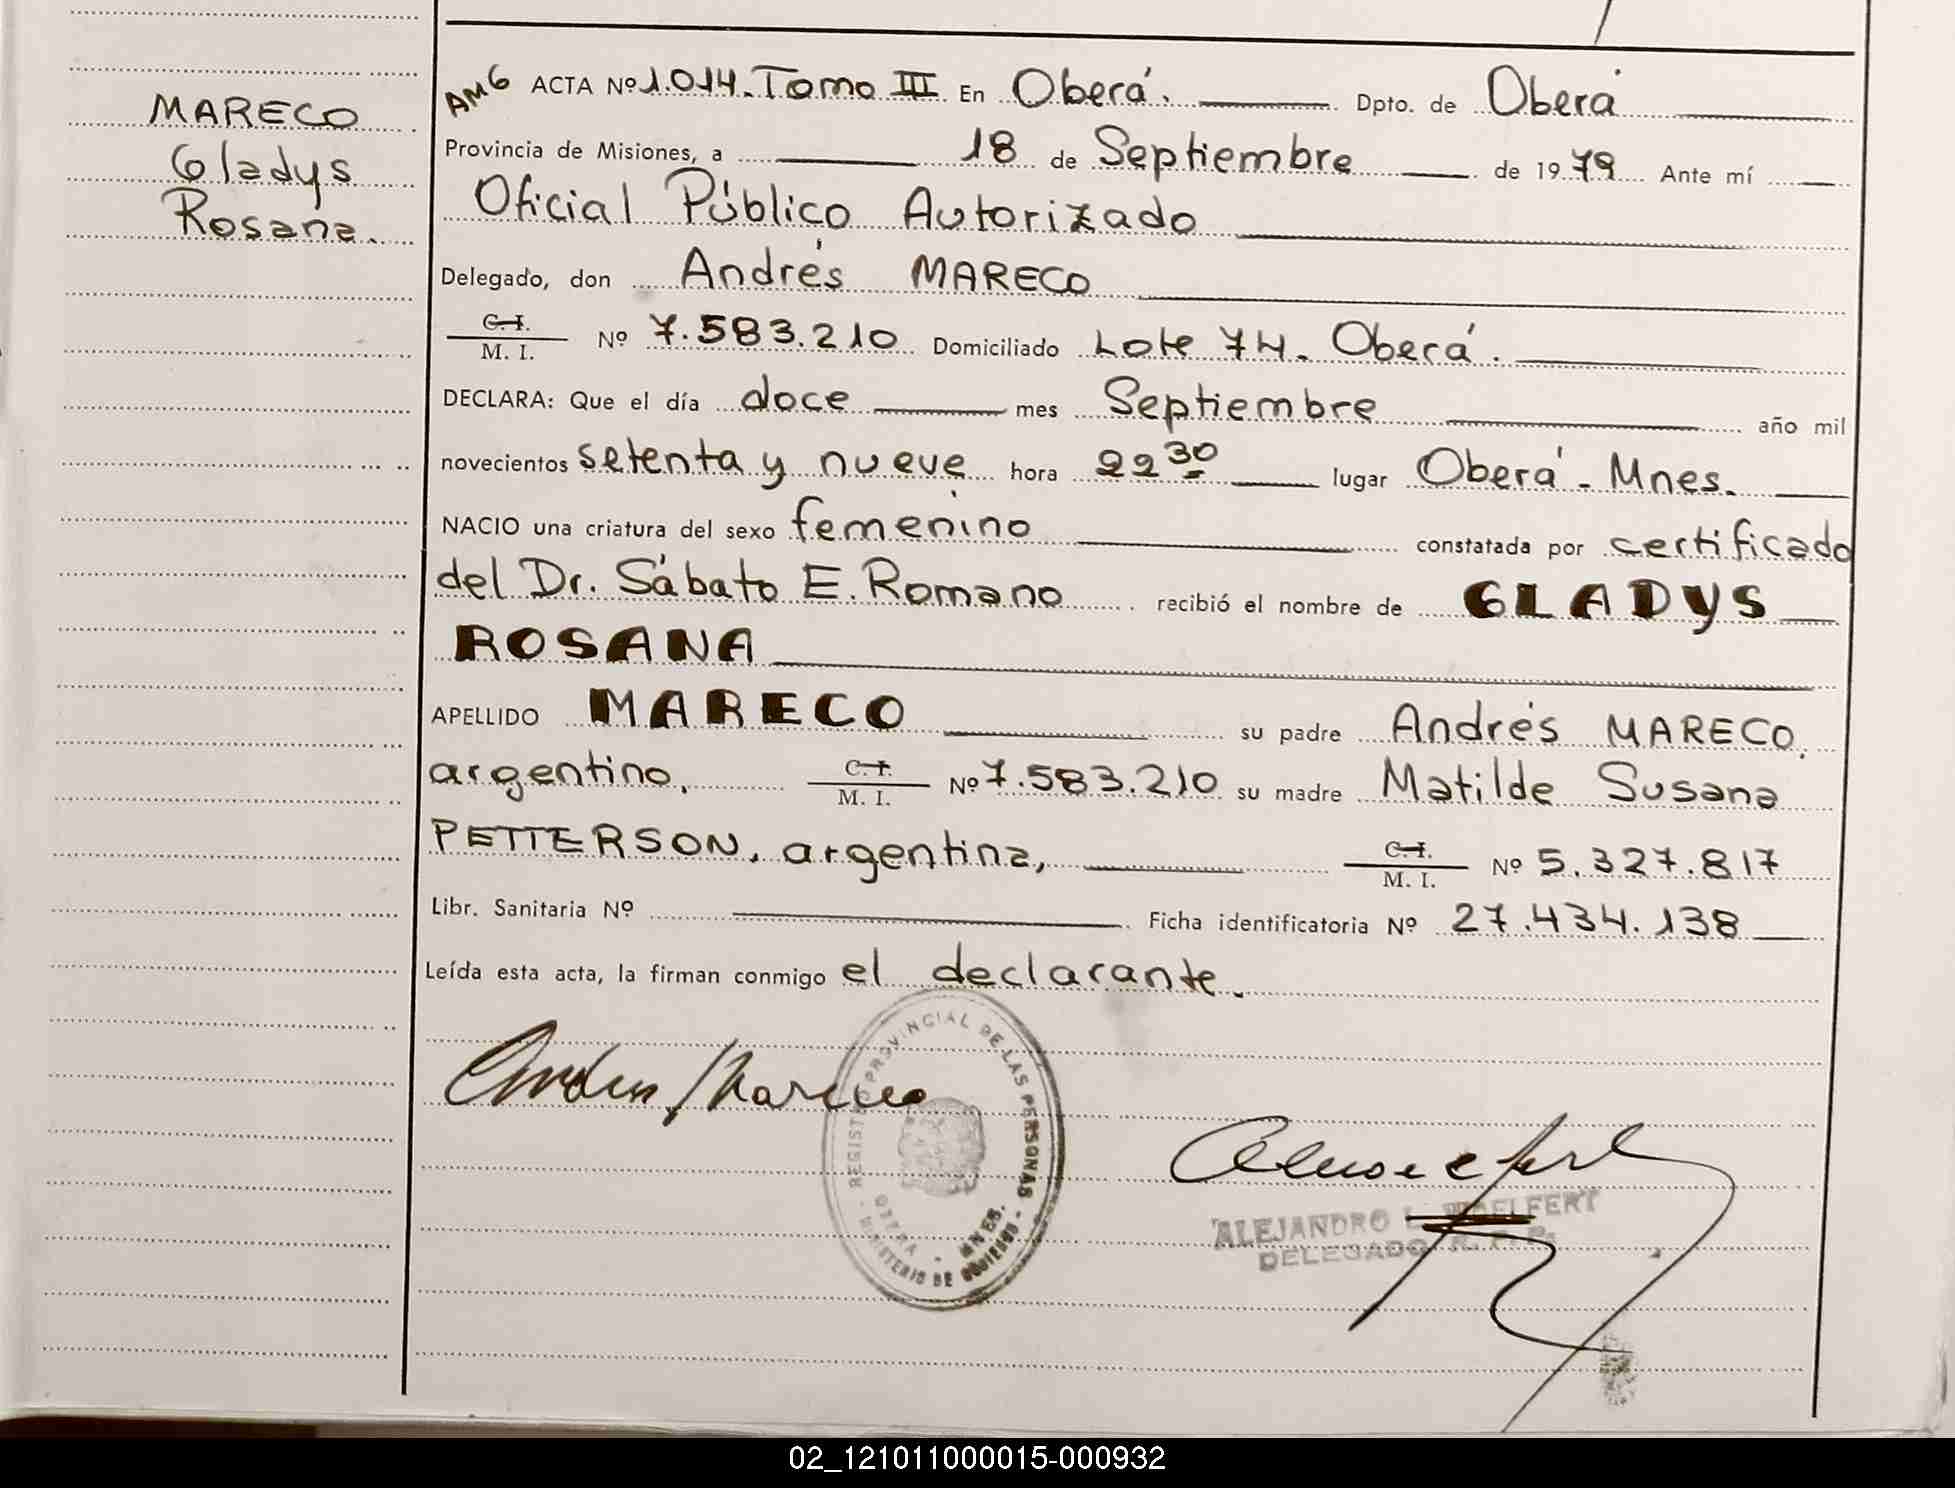 MARECO
Gladys
Rosana.
AMG ACTA Nº 1.014. Tomo III En Oberá. Dpto. de Oberá
Provincia de Misiones, a 18 de Septiembre de 1979 Ante mí
Oficial Público Autorizado
Delegado, don Andrés MARECO
C. I.
M. I. Nº 7.583.210 Domiciliado Lote 74. Oberá.
DECLARA: Que el día doce mes Septiembre año mil
novecientos setenta y nueve hora 22 30 lugar Oberá - Mnes.
NACIO una criatura del sexo femenino constatada por certificado
del Dr. Sábato E. Romano recibió el nombre de GLADYS
ROSANA
APELLIDO MARECO su padre Andrés MARECO,
argentino, C. I. M. I. Nº 7.583.210 su madre Matilde Susana
PETTERSON, argentina, C. I. M. I. Nº 5.327.817
Libr. Sanitaria Nº Ficha identificatoria Nº 27.434.138
Leída esta acta, la firman conmigo el declarante.
Andres Mareco
REGISTRO PROVINCIAL DE LAS PERSONAS
OBERA - MNES.
MINISTERIO DE GOBIERNO
ALEJANDRO L. WOELFERT
DELEGADO R. P. P.
02_121011000015-000932